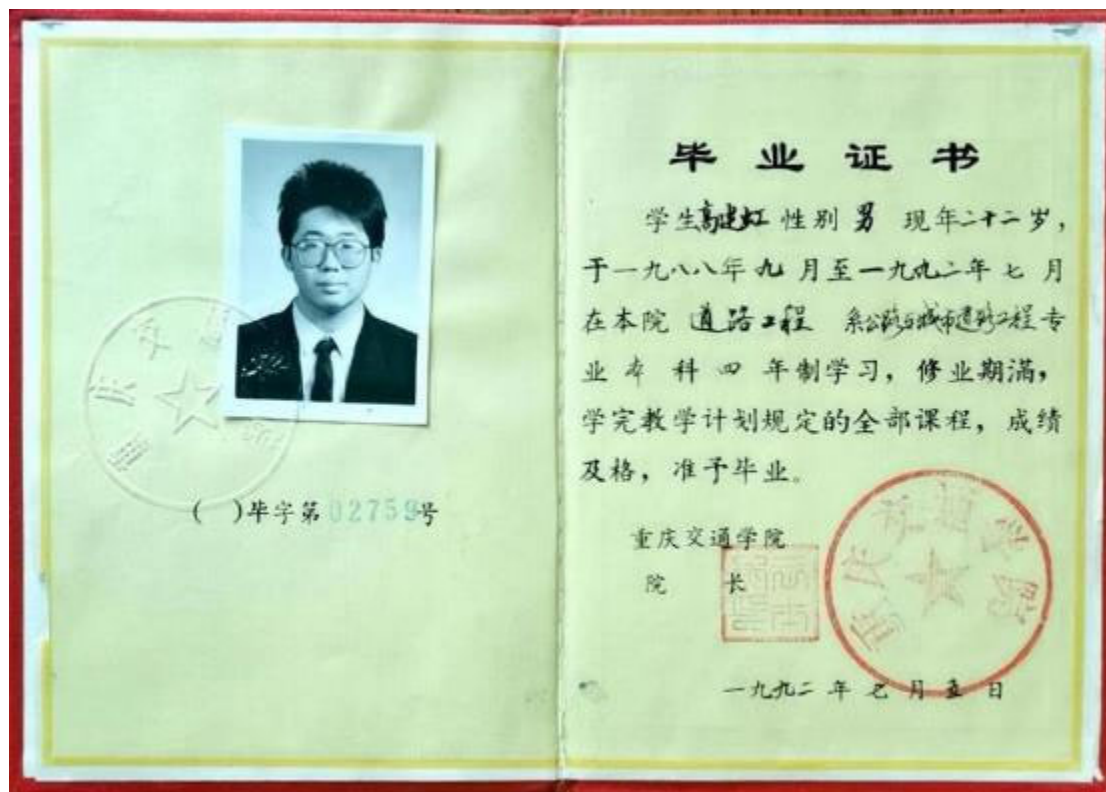 (    )毕字第02759号
毕业证书
学生高建虹性别男 现年二十二岁，
于一九八八年九月至一九九二年七月
在本院 道路工程 系公路与城市道路工程专
业本科四年制学习，修业期满，
学完教学计划规定的全部课程，成绩
及格，准予毕业。
重庆交通学院
院 长
重庆交通学院
一九九二年七月五日